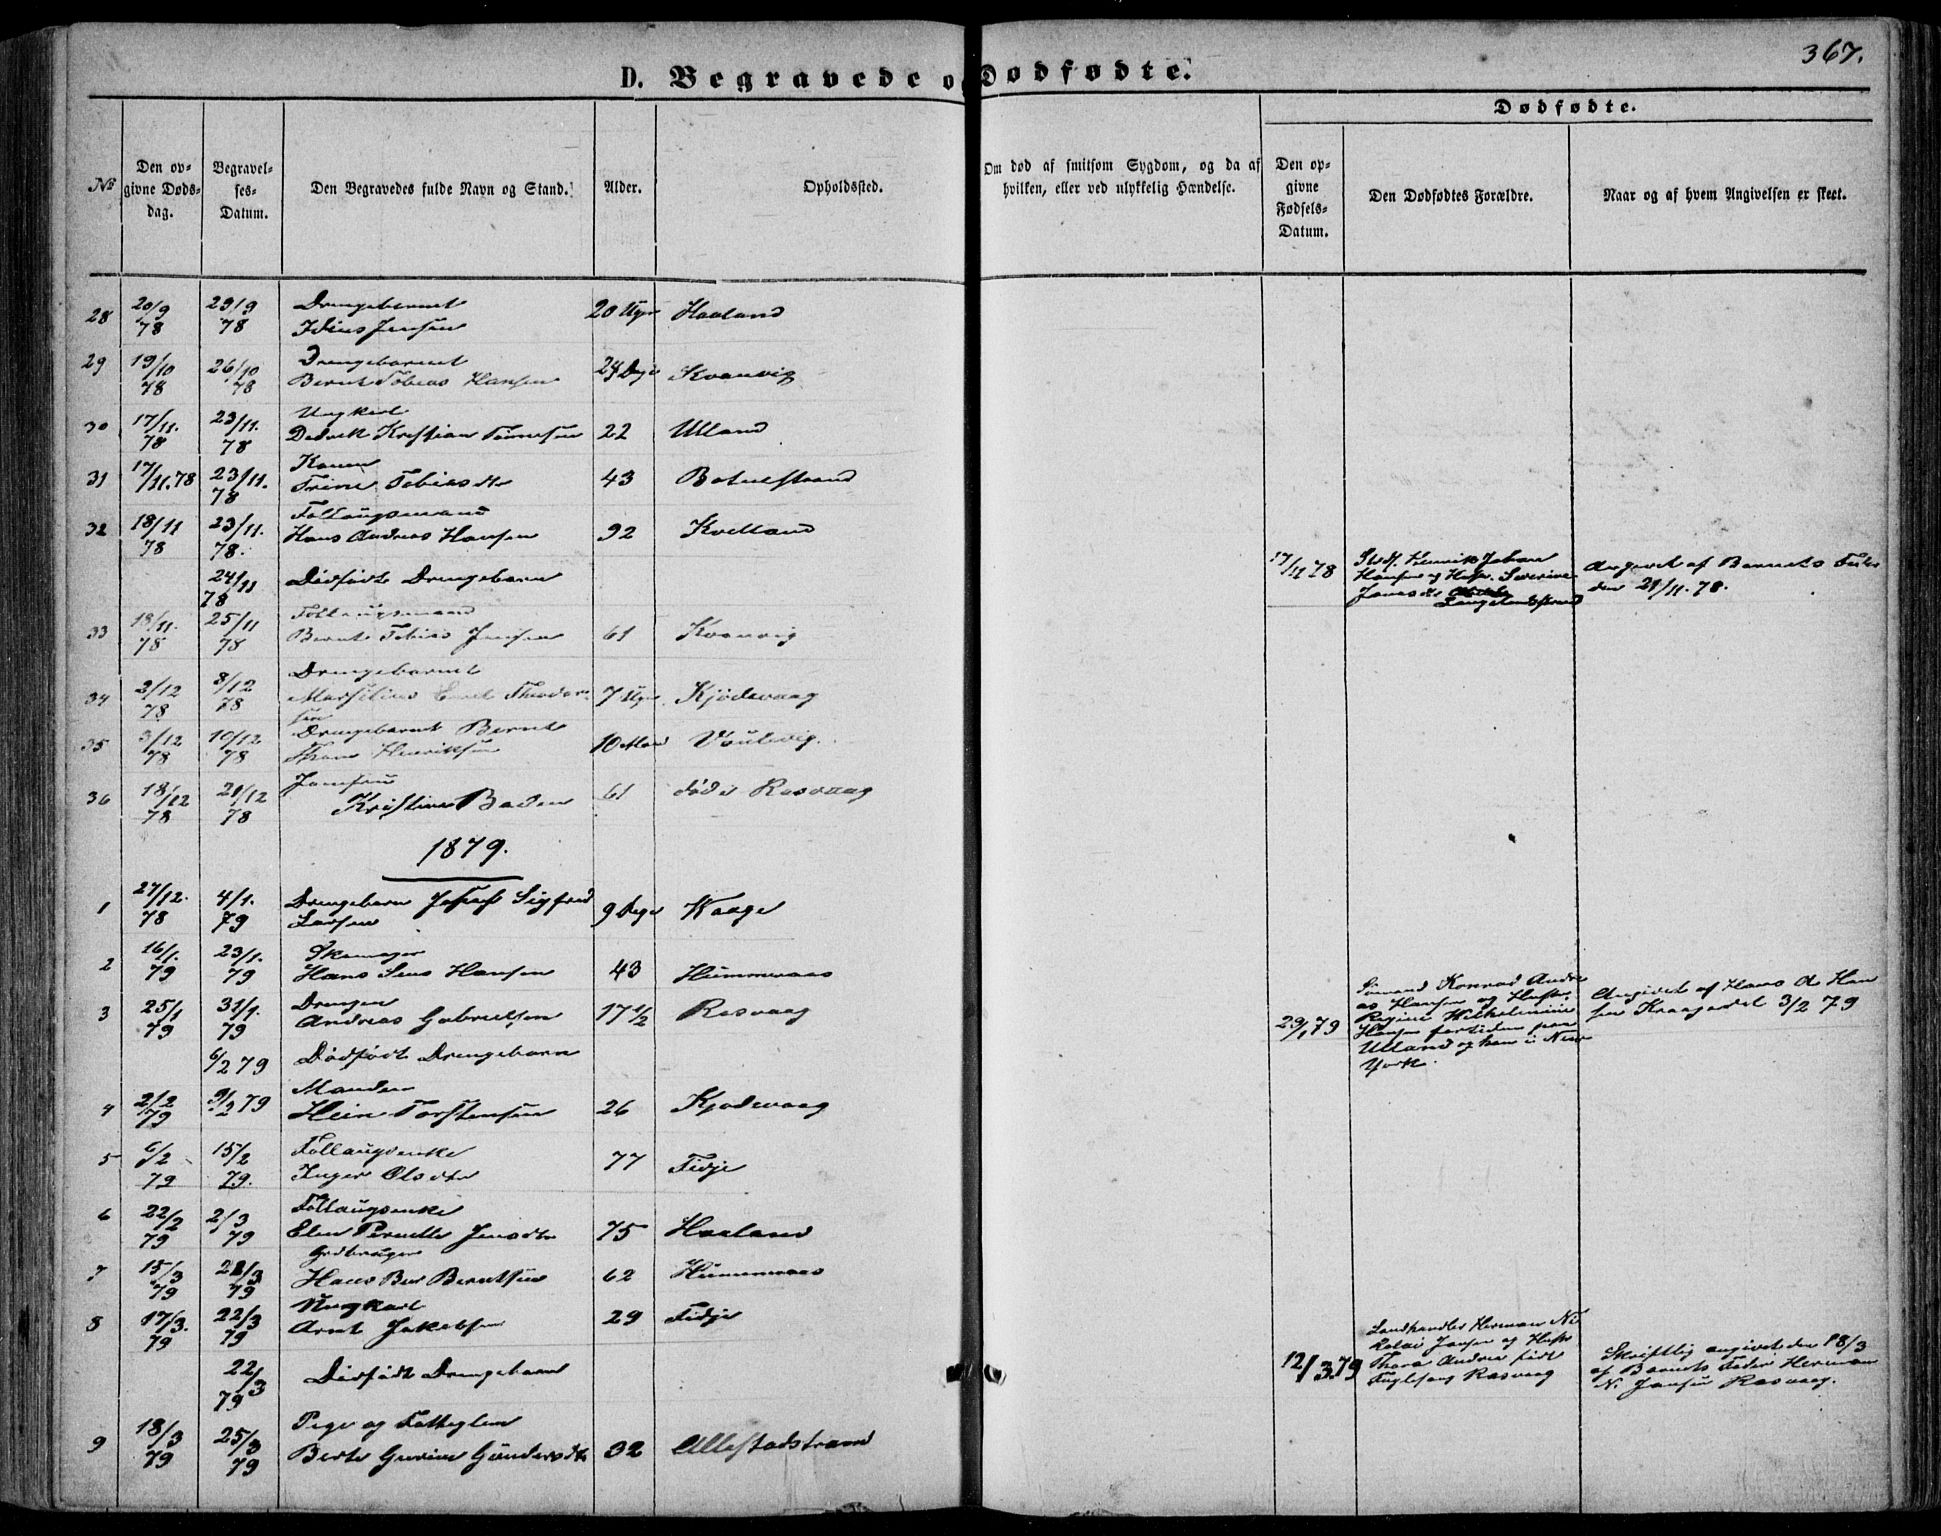 367.
D. Begravede o Dødfødte.
Dødfødte.
No
Den op-
givne Døds-
dag.
Begravel-
ses-
Datum.
Den Begravedes fulde Navn og Stand.
Alder.
Opholdssted.
Om død af smitsom Sygdom, og da af
hvilken, eller ved ulykkelig Hændelse.
Den op-
givne
Fødsels-
Datum.
Den Dødfødtes Forældre.
Naar og af hvem Angivelsen er skeet.
28 20/9 78 23/9 78 Drengebarnet
Jensen 20 Uger Haaland
29 19/10 78 26/10 78 Drengebarnet
Bernt Tobias Hansen 24 Dage Kvanvig
30 17/11. 78 23/11. 78 Ungkarl
Didrik Kristian Tønnesen 22 Ulland
31 17/11.78 23/11. 78 Konen
Trine Tobiasdtr 43 Botnestrand
32 18/11 78 23/11. 78. Føllaugsmand
Hans Andreas Hansen 92 Kvelland
24/11 78 Dødfødte Drengebarn
17/11 78 Henrik Johan
Hansen og Hustr. Severine
Jonasdtr
Langelandstrand
Angivet af Barnets Fader
den 21/11. 78.
33 18/11. 78 25/11 78 Føllaugsmand
Bernt Tobias Jensen 61 Kvanvig
34 2/12 78 8/12 78 Drengebarnet
Marsilius Emil Theodor
sen 7 Uger Kjødevaag
35 3/12 78 10/12 78 Drengebarnet Bernt
Thom Henriksen 10 Mdr Vaulevig.
36 18/12 78 21/12 78 Jomfru
Kristine Baden 61 født Rasvaag
1879.
1 27/12. 78 4/1. 79 Drengebarn Josef Sigfred
Larsen 9 Dage Kaage
2 16/1. 79 23/1. 79 Skomager
Hans Sens Hansen 43 Hummeraas
3 25/1 79 31/1. 79 Drengen
Andreas Gabrielsen 17 1/2 Rasvaag
6/2 79 Dødfødt Drengebarn
29/1 79 Sømand Konrad Andre
as Hansen og Hustr.
Regine Wilhelmine
Hansen fortiden paa
Ulland og han i New
York.
Angivet af Hans A. Han
sen Kraagedal 3/2 79
4 2/2 79 9/2 79 Manden
Hein Torstensen 26 Kjødevaag
5 6/2 79 15/2 79. Føllaugsenke
Inger Olsdtr 77 Fidje
6 22/2 79 2/3 79 Føllaugsenke
Elen Pernille Jensdtr 75 Haaland
7 15/3 79 21/3 79 Grdbruger
Hans Ber Berntsen 62 Hummeraas
8 17/3. 79 22/3 79 Ungkarl
Arnt Jakobsen 29 Fidje
22/3 79 Dødfødt Drengebarn
12/3 79 Landhandler Herman Ni
kolai Jansen og Hustr
Thora Andrea født
Fuglsang Rasvaag
Skriftlig angivet den 18/3
af Barnets Fader Herman
N. Jansen Rasvaag.
9 18/3 79 25/3 79 Pige og Fattiglem
Berte Gurine Gundersdtr 32 Allestadstrand